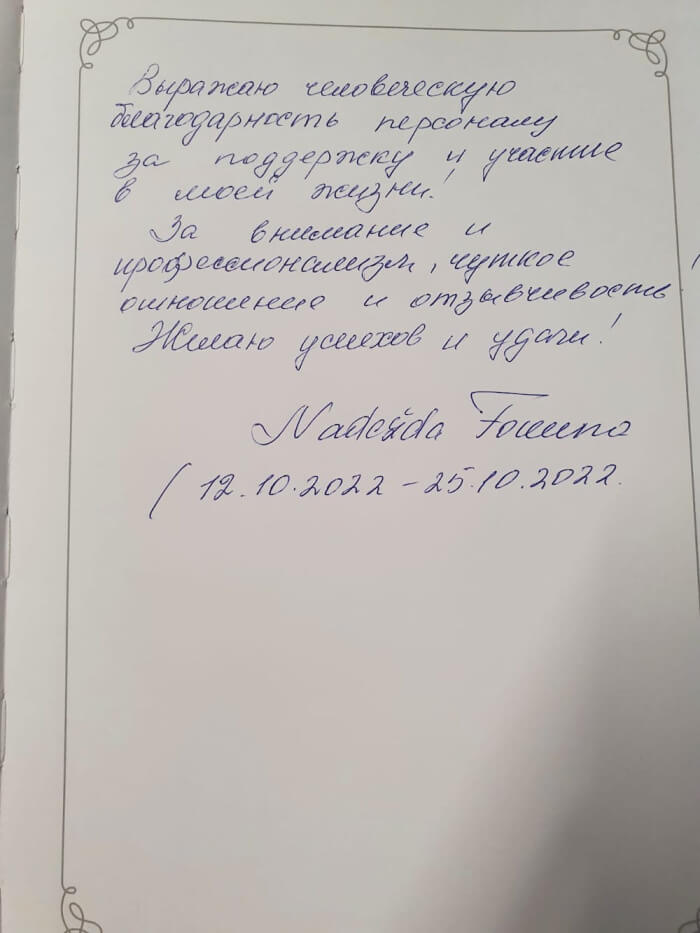 Выражаю человеческую
благодарность персоналу
за поддержку и участие
в моей жизни!
За внимание и
профессионализм, чуткое
отношение и отзывчивость
Желаю успехов и удачи!
Nadežda
( 12.10.2022 – 25.10.2022.